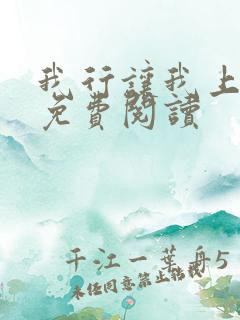 我行讓我上
免費閱讀
千江一葉舟5
未經同意禁止轉載